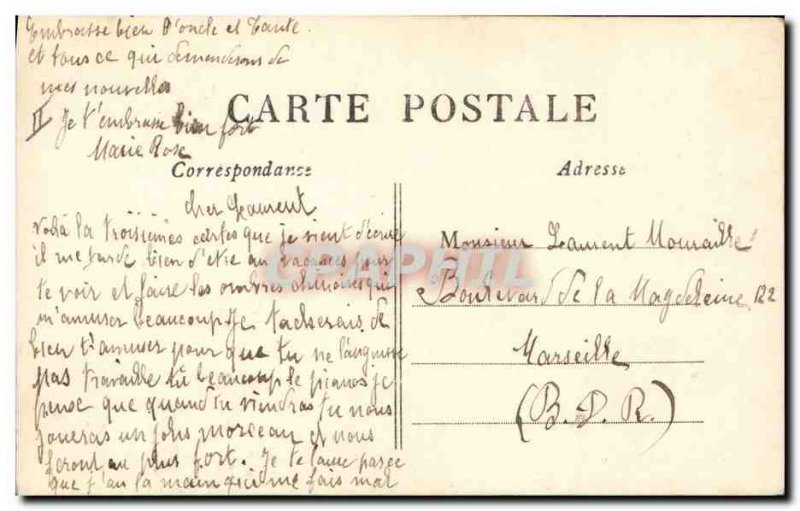 Embrasse bien l'oncle et Tante.
et tous ce qui demanderons de
mes nouvelles
II Je t'embrasse bien fort
Marie Rose
CARTE POSTALE
Correspondance
Adresse
cher Laurent
voilà la troisièmes cartes que je vient d'écrire
il me tarde bien d'etre au vacances pour
te voir et faire les ombres chinoises qui
m'amuser beaucoup Je tacherais de
bien t'amuser pour que tu ne
pas travaille tu beaucoup le pianos je
pense que quand tu viendras tu nous
joueras un jolis morceau et nous
seront au plus fort. Je te laisse parce
que j'ai la main qui me fais mal
Monsieur Laurent Mouraille
Boulevard de la Magdeleine 122
Marseille
(B. D. R.)
CPAPHIL